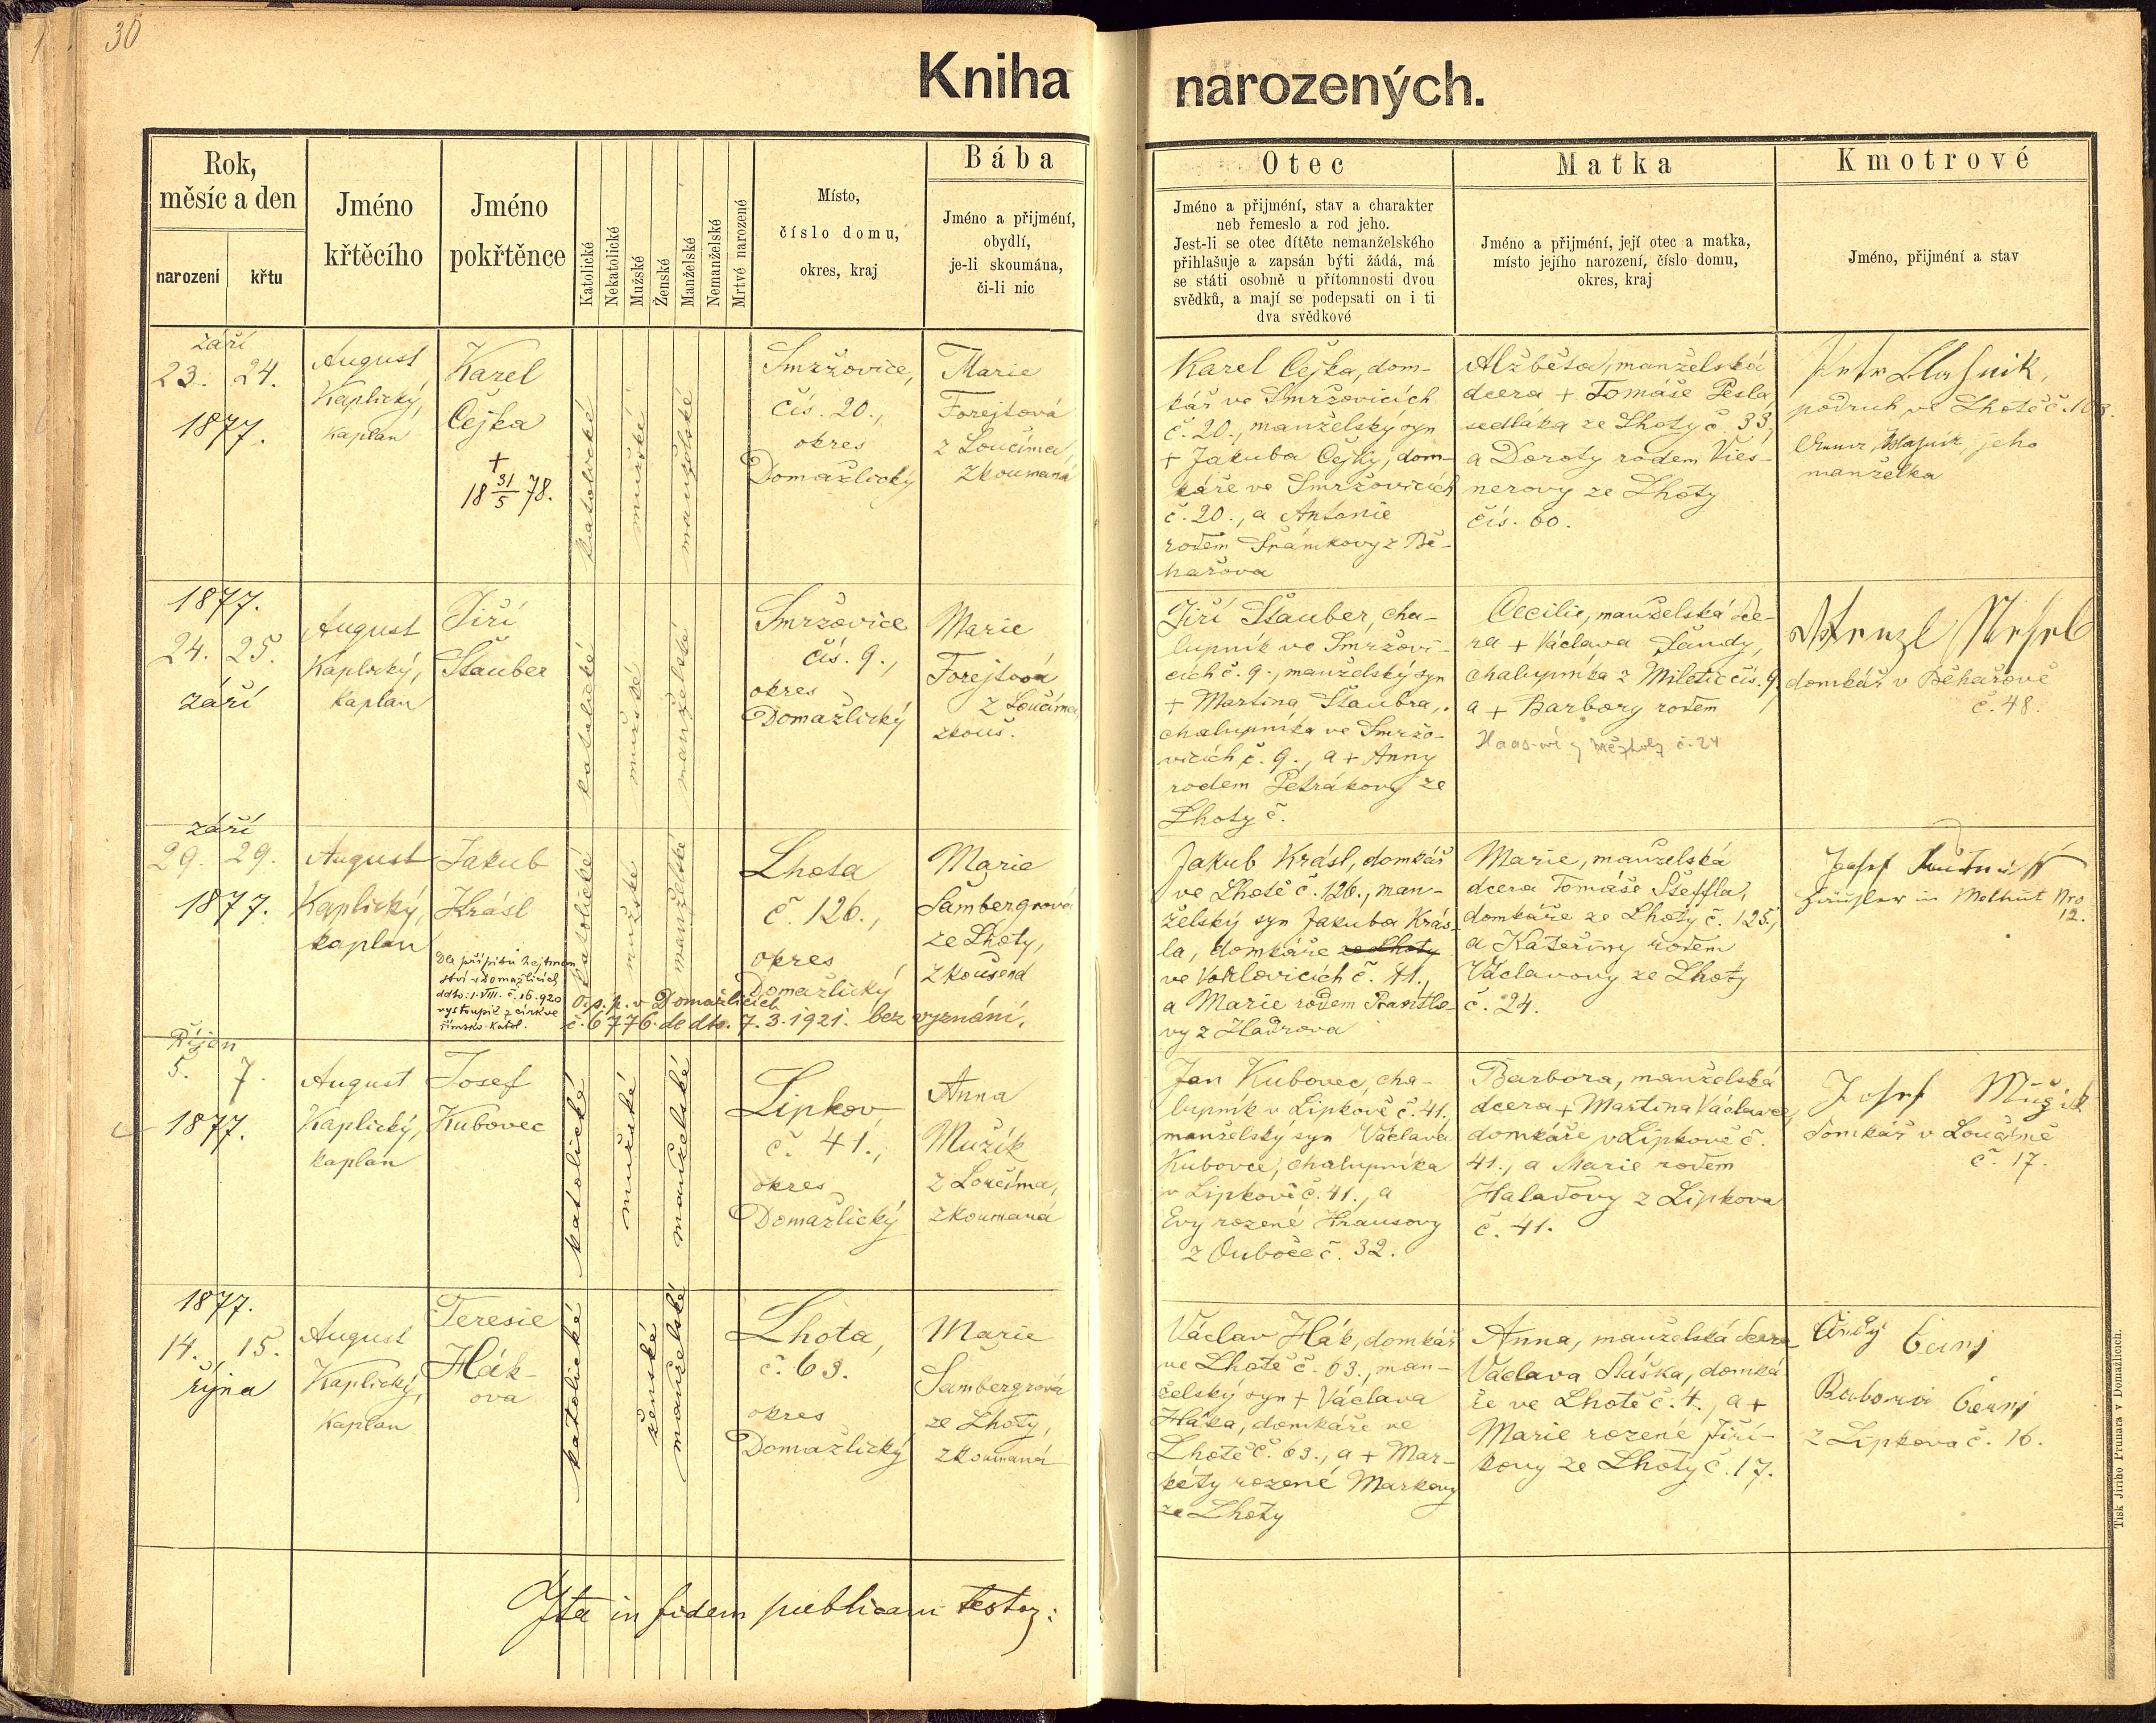 30
Kniha narozených.
Rok,
měsíc a den
narození
křtu
Jméno
křtěcího
Jméno
pokřtěnce
Katolické
Nekatolické
Mužské
Ženské
Manželské
Nemanželské
Mrtvé narozené
Místo,
číslo domu,
okres, kraj
Bába
Jméno a přijmění,
obydlí,
je-li skoumána,
či-li nic
Otec
Jméno a přijmění, stav a charakter
neb řemeslo a rod jeho.
Jest-li se otec dítěte nemanželského
přihlašuje a zapsán býti žádá, má
se státi osobně u přítomnosti dvou
svědků, a mají se podepsati on i ti
dva svědkové
Matka
Jméno a přijmění, její otec a matka,
místo jejího narození, číslo domu,
okres, kraj
Kmotrové
Jméno, přijmění a stav
září
23. 24.
1877.
August
Kaplický,
kaplan
Karel
Čejka
+
18 31/5 78.
katolické
mužské
manželské
Smržovice,
čís. 20.,
okres
Domažlický
Marie
Forejtová
z Loučíma,
zkoumaná
Karel Čejka, dom-
kář ve Smržovicích
č. 20., manželský syn
+ Jakuba Čejky, dom-
káře ve Smržovicích
č. 20., a Antonie
rodem Šrámkovy z Bě-
hařova
Alžběta, manželská
dcera + Tomáše Pesla,
sedláka ze Lhoty č. 33.,
a Doroty rodem Vies-
nerovy ze Lhoty
čís. 60.
podruh ve Lhotě č. 103.
jeho
manželka
1877.
24. 25.
září
August
Kaplický,
kaplan
Jiří
Štauber
katolické
mužské
manželské
Smržovice
čís. 9.,
okres
Domažlický
Marie
Forejtová
z Loučíma
zkouš.
Jiří Štauber, cha-
lupník ve Smržovi-
cích č. 9., manželský syn
+ Martina Štaubra,
chalupníka ve Smržo-
vicích č. 9., a + Anny
rodem Petrákovy ze
Lhoty č.
Cecilie, manželská dce-
ra + Václava Šandy,
chalupníka z Miletic čís. 9,
a + Barbory rodem
č. 24
Wenzl
domkář v Běhařově
č. 48.
září
29. 29.
1877.
August
Kaplický,
kaplan
Jakub
Krásl
Dle přípisu hejtman
ství v Domažlicích
ddto: 1. VIII. č. 16.920
vystoupil z církve
římsko-katol.
O. s. p. v Domažlicích
č. 6776. de dto. 7.3.1921. bez vyznání.
katolické
mužské
manželské
Lhota
č. 126.,
okres
Domažlický
Marie
Šambergrová
ze Lhoty,
zkoušena
Jakub Krásl, domkář
ve Lhotě č. 126., man-
želský syn Jakuba Krás-
la, domkáře ze Lhoty
ve Vokřovicích č. 41.,
a Marie rodem Prantlo-
vy z Hadrova
Marie, manželská
dcera Tomáše Šteffla,
domkáře ze Lhoty č. 125.,
a Kateřiny rodem
Václavovy ze Lhoty
č. 24.
Josef
Häusler in Melhut Nro
12.
Říjen
5. 7.
1877.
August
Kaplický,
kaplan
Josef
Kubovec
katolické
mužské
manželské
Lipkov
č. 41.,
okres
Domažlický
Anna
Mužík
z Loučíma,
zkoumaná
Jan Kubovec, cha-
lupník v Lipkově č. 41.
manželský syn Václava
Kubovce, chalupníka
v Lipkově č. 41., a
Evy rozené Krausovy
z Ouboče č. 32.
Barbora, manželská
dcera + Martina Václavce,
domkáře v Lipkově č.
41., a Marie rodem
Halaďovy z Lipkova
č. 41.
Josef Mužik
domkář v Loučimě
č. 17.
1877.
14. 15.
října
August
Kaplický,
Kaplan
Teresie
Hák-
ova
katolické
ženské
manželské
Lhota,
č. 63.
okres
Domažlický
Marie
Šambergrová
ze Lhoty,
zkoumaná
Václav Hák, domkář
ve Lhotě č. 63., man-
želský syn + Václava
Háka, domkáře ve
Lhotě č. 63., a + Mar-
kéty rozené Markovy
ze Lhoty
Anna, manželská dcera
Václava Staška, domká
ře ve Lhotě č. 4., a +
Marie rozené Jiří-
kovy ze Lhoty č. 17.
Černj
Černj
z Lipkova č. 16.
Ita in fidem publicam testor:
Tisk Jiřího Prunara v Domažlicích.